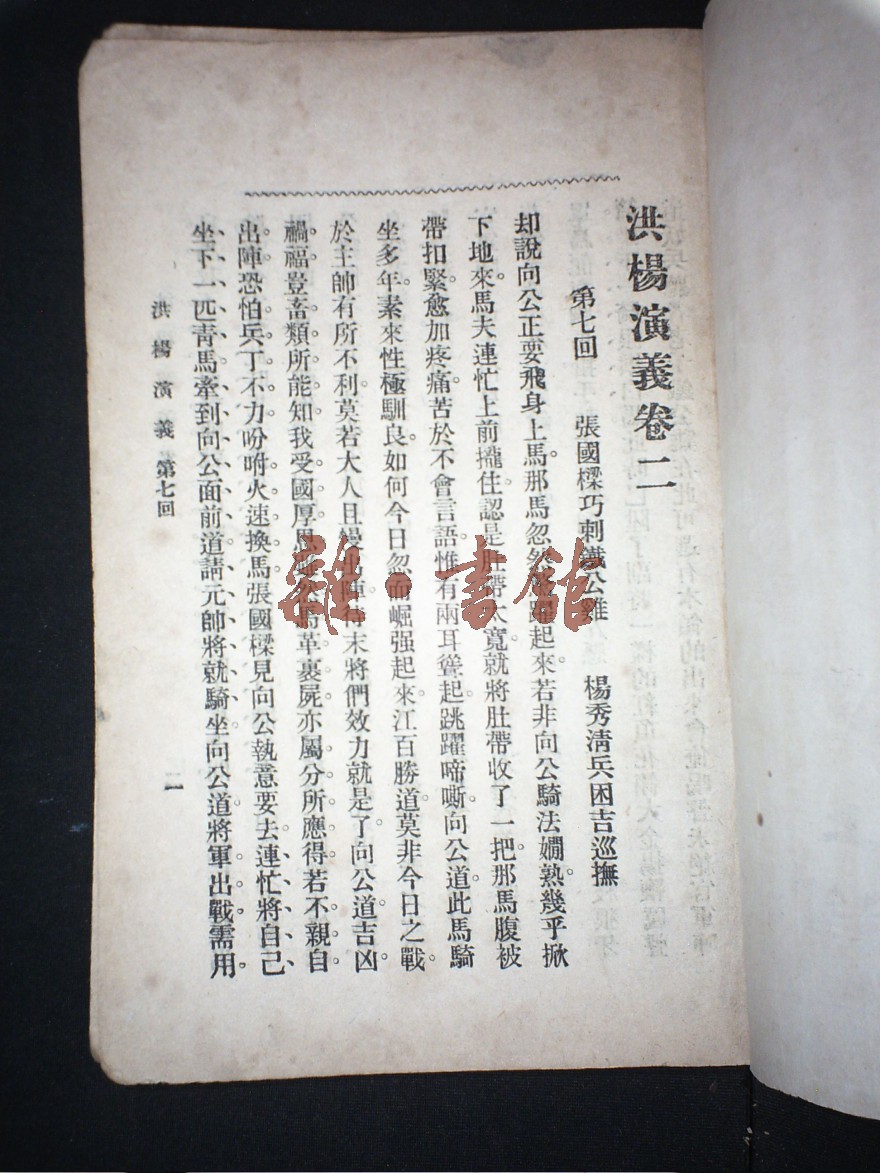 洪楊演義卷二
第七回 張國樑巧刺鐵公雞 楊秀淸兵困吉巡撫
却說向公正要飛身上馬那馬忽然跳躍起來若非向公騎法嫺熟幾乎掀
下地來馬夫連忙上前攏住認是肚帶太寬就將肚帶收了一把那馬腹被
帶扣緊愈加疼痛苦於不會言語惟有兩耳聳起跳躍啼嘶向公道此馬騎
坐多年素來性極馴良如何今日忽而崛强起來江百勝道莫非今日之戰
於主帥有所不利莫若大人且慢出陣待末將們效力就是了向公道吉凶
禍福豈畜類所能知我受國厚恩雖然馬革裹屍亦屬分所應得若不親自
出陣恐怕兵丁不力吩咐火速換馬張國樑見向公執意要去連忙將自己
坐下一匹靑馬牽到向公面前道請元帥將就騎坐向公道將軍出戰需用
洪楊演義 第七回
二
雜·書館